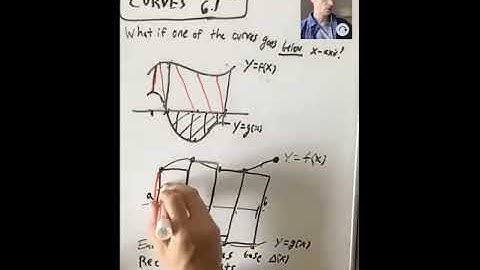 CURVES 6.1
What if one of the curves goes below x-axis!
Y=f(x)
Y=g(x)
Y=f(x)
a b
Y=g(x)
base Δ(x)